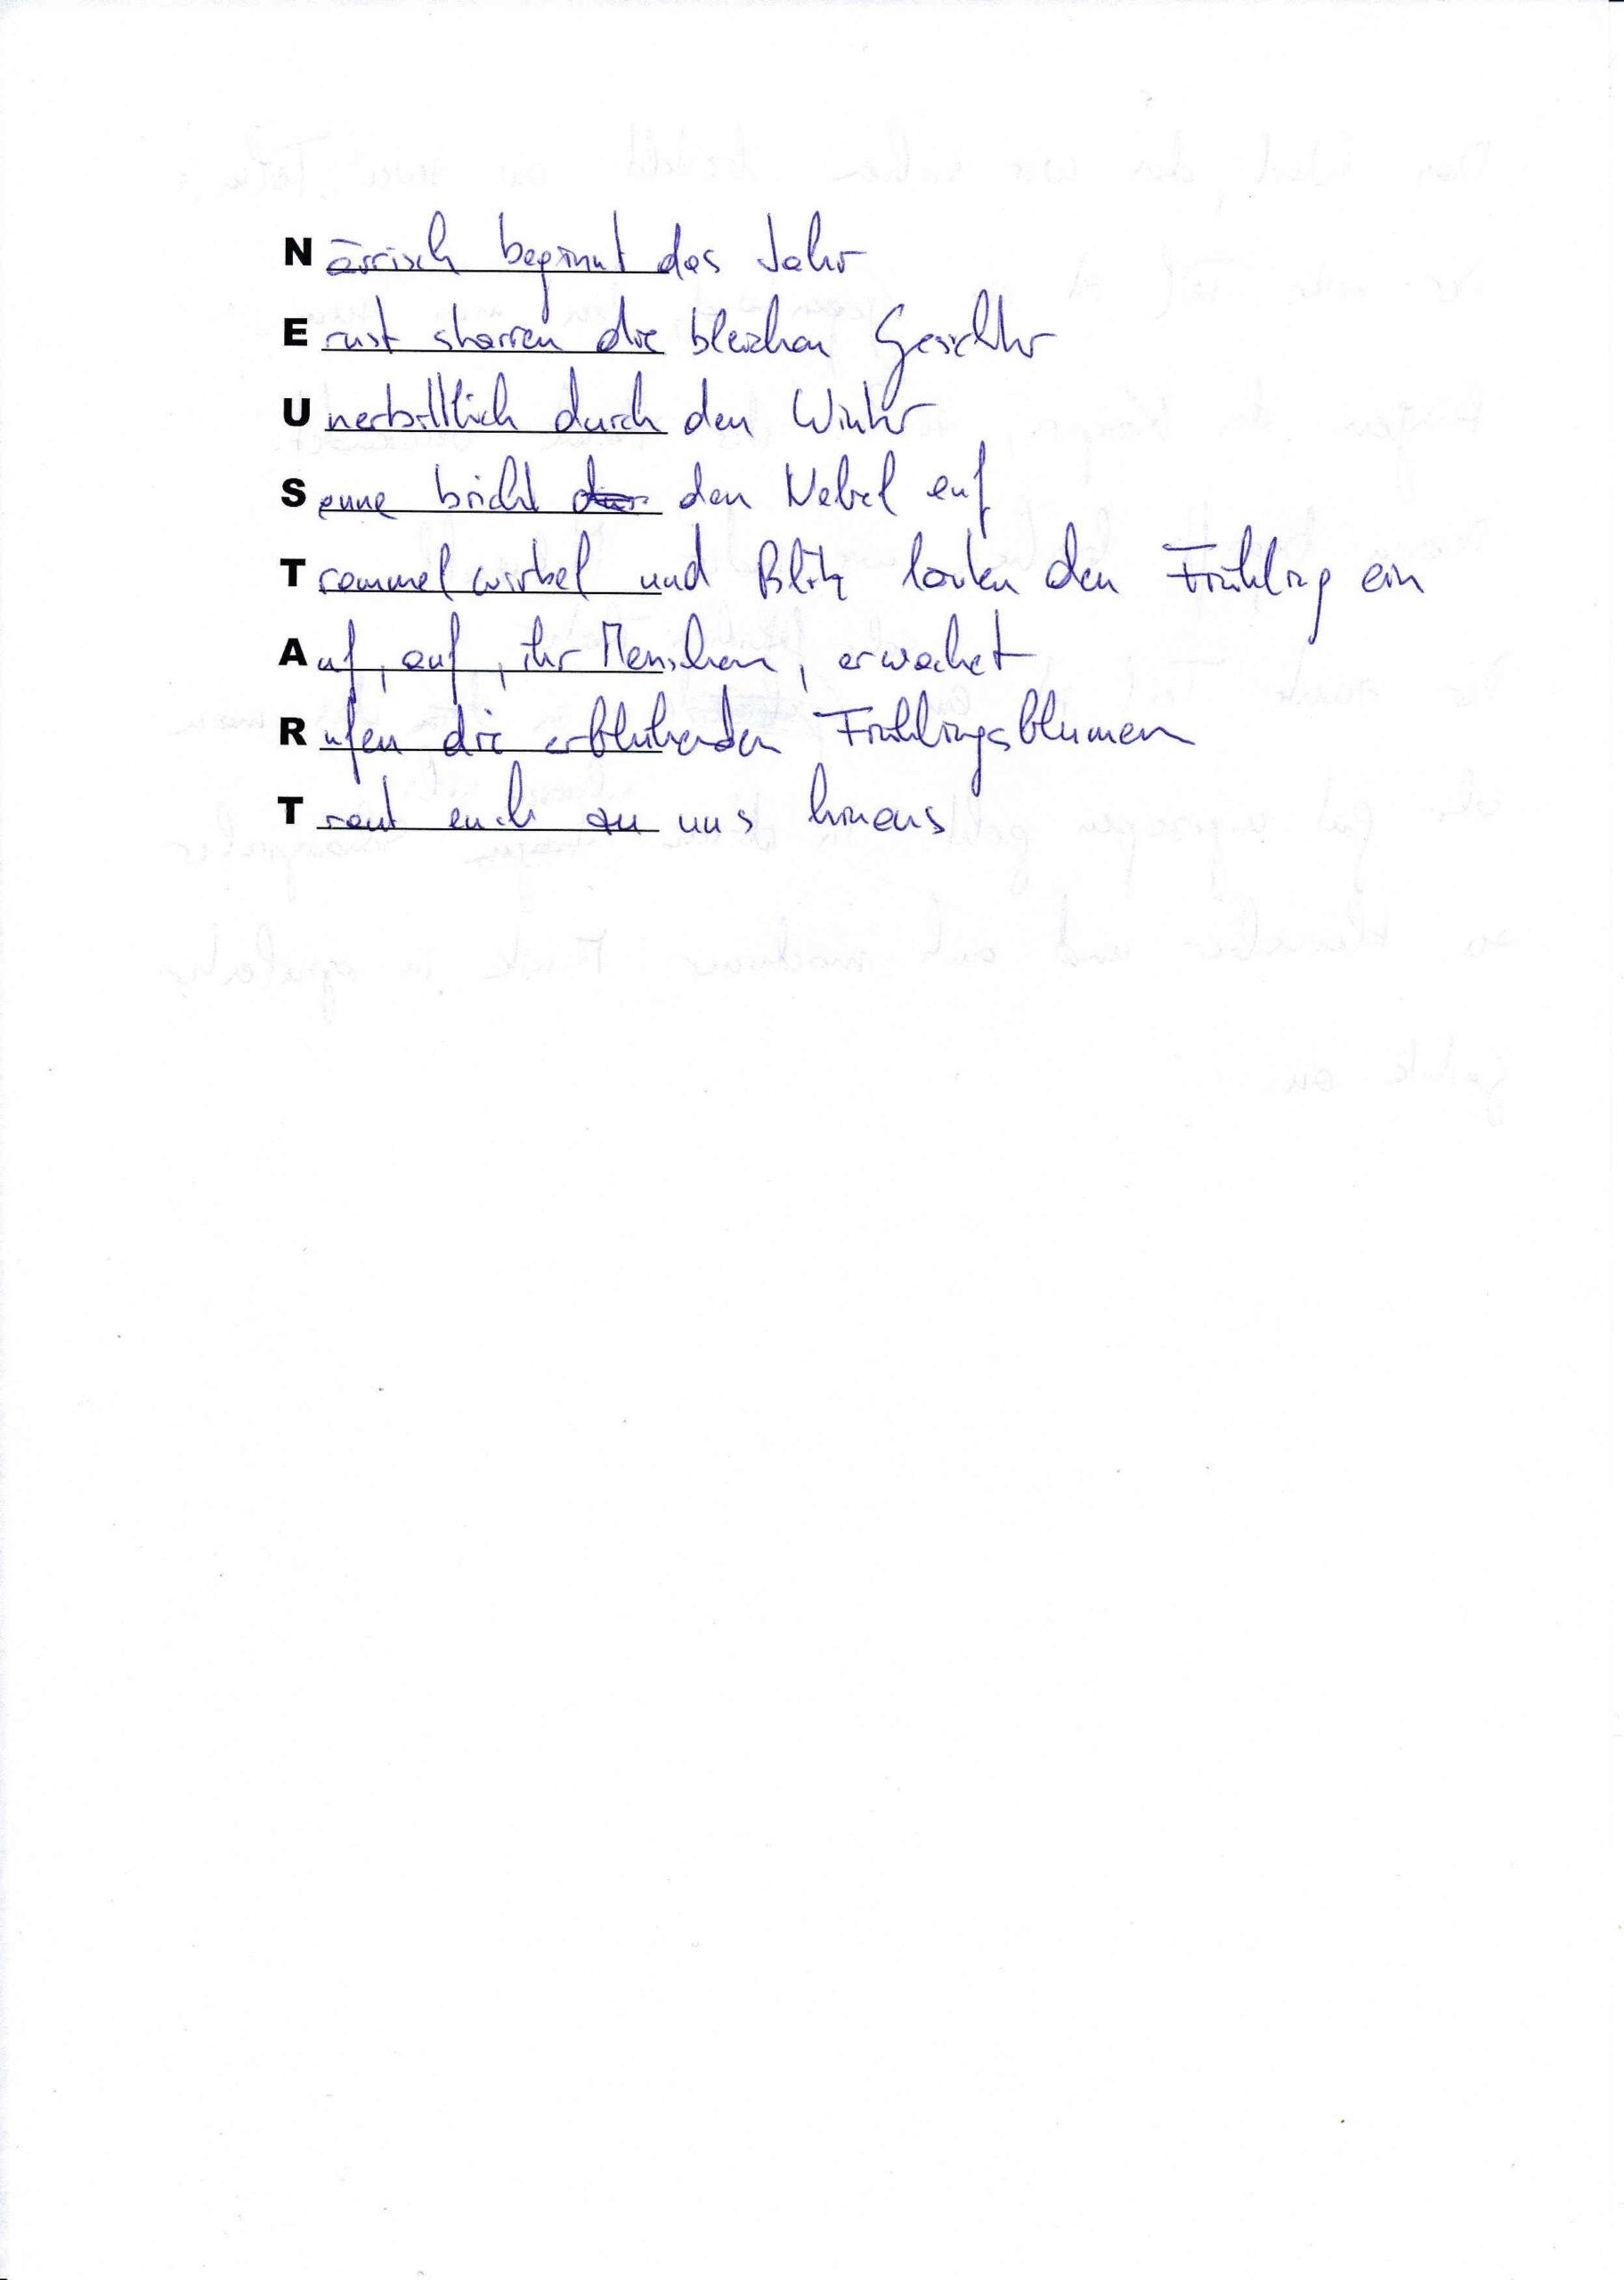 Närrisch beginnt das Jahr
Ernst starren die bleichen Gesichter
Unerbittlich durch den Winter
Sonne bricht den Nebel auf
Trommelwirbel und Blitz läuten den Frühling ein
Auf, auf, ihr Menschen, erwachet
Rufen die erblühenden Frühlingsblumen
Traut euch zu uns hinaus